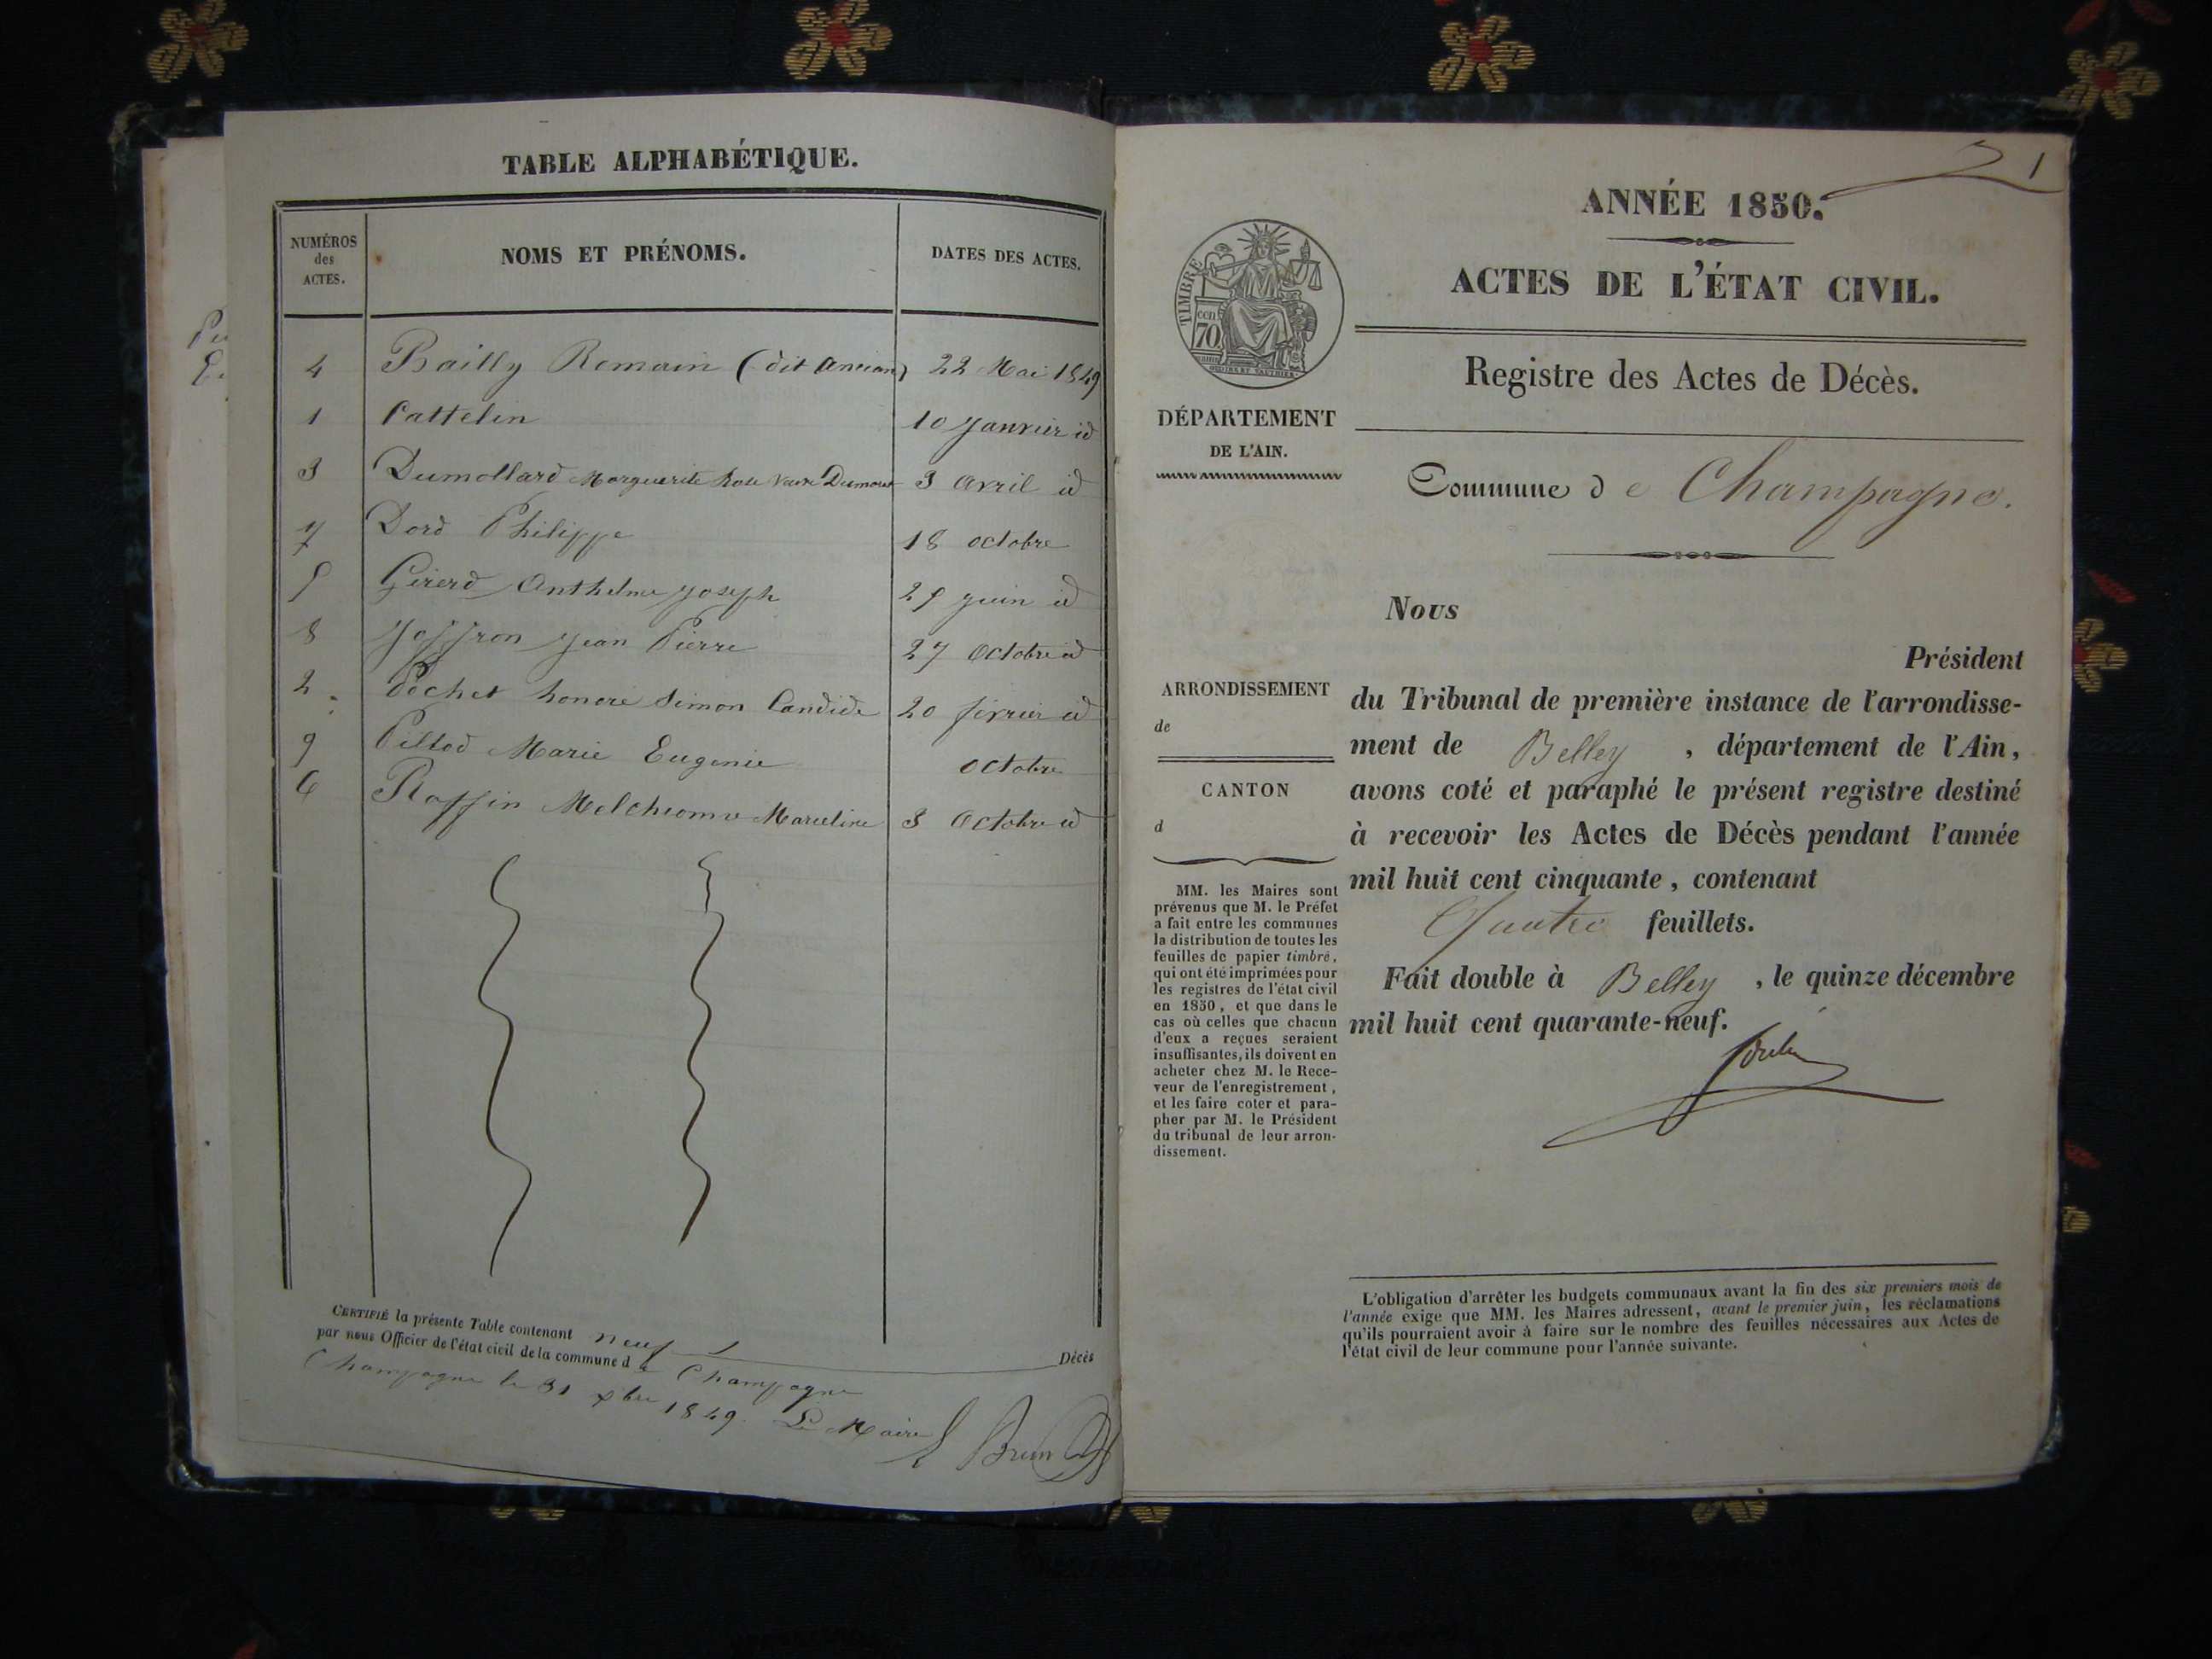 TABLE ALPHABÉTIQUE.
NUMÉROS
des
ACTES.
NOMS ET PRÉNOMS.
DATES DES ACTES.
4 Bailly Romain (dit Ancian) 22 Mai 1849
1 Cattelin 10 Janvier id
3 Dumollard Marguerite Rose Veuve 3 avril id
7 Dord Philippe 18 octobre
5 Girerd Anthelme Joseph 25 juin id
8 Joffron Jean Pierre 27 Octobre id
2 Pochet honoré Simon Candide 20 février id
9 Piltod Marie Eugenie octobre
6 Roffin Marceline 3 Octobre id
CERTIFIÉ la présente Table contenant neuf Décès
par nous Officier de l'état civil de la commune de Champagne
Champagne le 31 xbre 1849. Le Maire
Brun
1
ANNÉE 1850.
ACTES DE L'ÉTAT CIVIL.
TIMBRE
cen
70
Registre des Actes de Décès.
DÉPARTEMENT
DE L'AIN.
Commune de Champagne.
Nous
Président
du Tribunal de première instance de l'arrondisse-
ment de Belley , département de l'Ain,
avons coté et paraphé le présent registre destiné
à recevoir les Actes de Décès pendant l'année
mil huit cent cinquante, contenant
Quatre feuillets.
Fait double à Belley , le quinze décembre
mil huit cent quarante-neuf.
ARRONDISSEMENT
de
CANTON
d
MM. les Maires sont
prévenus que M. le Préfet
a fait entre les communes
la distribution de toutes les
feuilles de papier timbré,
qui ont été imprimées pour
les registres de l'état civil
en 1850, et que dans le
cas où celles que chacun
d'eux a reçues seraient
insuffisantes, ils doivent en
acheter chez M. le Rece-
veur de l'enregistrement,
et les faire coter et para-
pher par M. le Président
du tribunal de leur arron-
dissement.
L'obligation d'arrêter les budgets communaux avant la fin des six premiers mois de
l'année exige que MM. les Maires adressent, avant le premier juin, les réclamations
qu'ils pourraient avoir à faire sur le nombre des feuilles nécessaires aux Actes de
l'état civil de leur commune pour l'année suivante.